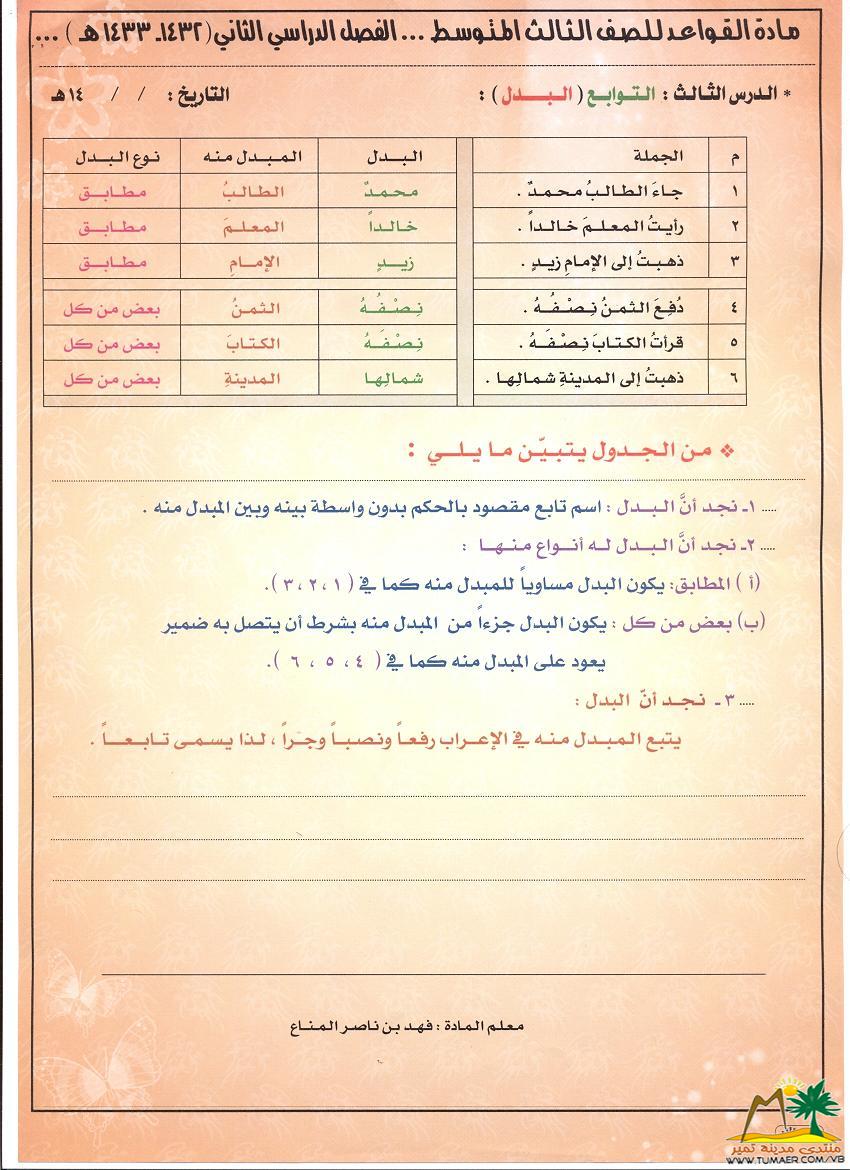 مادة القواعد للصف الثالث المتوسط ... الفصل الدراسي الثاني (١٤٣٢ـ ١٤٣٣ هـ ) ...
* الدرس الثالث : التوابع ( البدل ) : التاريخ : / / ١٤هـ
م الجملة البدل المبدل منه نوع البدل
١ جاءَ الطالبُ محمدٌ . محمدٌ الطالبُ مطابق
٢ رأيتُ المعلمَ خالداً . خالداً المعلمَ مطابق
٣ ذهبتُ إلى الإمامِ زيدٍ . زيدٍ الإمامِ مطابق
٤ دُفِعَ الثمنُ نِصْفُهُ . نِصْفُهُ الثمنُ بعض من كل
٥ قرأتُ الكتابَ نِصْفَهُ . نِصْفَهُ الكتابَ بعض من كل
٦ ذهبتُ إلى المدينةِ شمالِها . شمالِها المدينةِ بعض من كل
❖ من الجدول يتبيّن ما يلي :
..... ١ـ نجد أنَّ البدل : اسم تابع مقصود بالحكم بدون واسطة بينه وبين المبدل منه .
..... ٢ـ نجد أنَّ البدل له أنواع منها :
(أ ) المطابق: يكون البدل مساوياً للمبدل منه كما في ( ١ ، ٢ ، ٣ ).
(ب) بعض من كل : يكون البدل جزءاً من المبدل منه بشرط أن يتصل به ضمير
يعود على المبدل منه كما في ( ٤ ، ٥ ، ٦ ).
..... ٣ ـ نجد أنّ البدل :
يتبع المبدل منه في الإعراب رفعاً ونصباً وجراً ، لذا يسمى تابعاً .
معلم المادة : فهد بن ناصر المناع
منتدى مدينة تمير
WWW.TUMAER.COM/VB